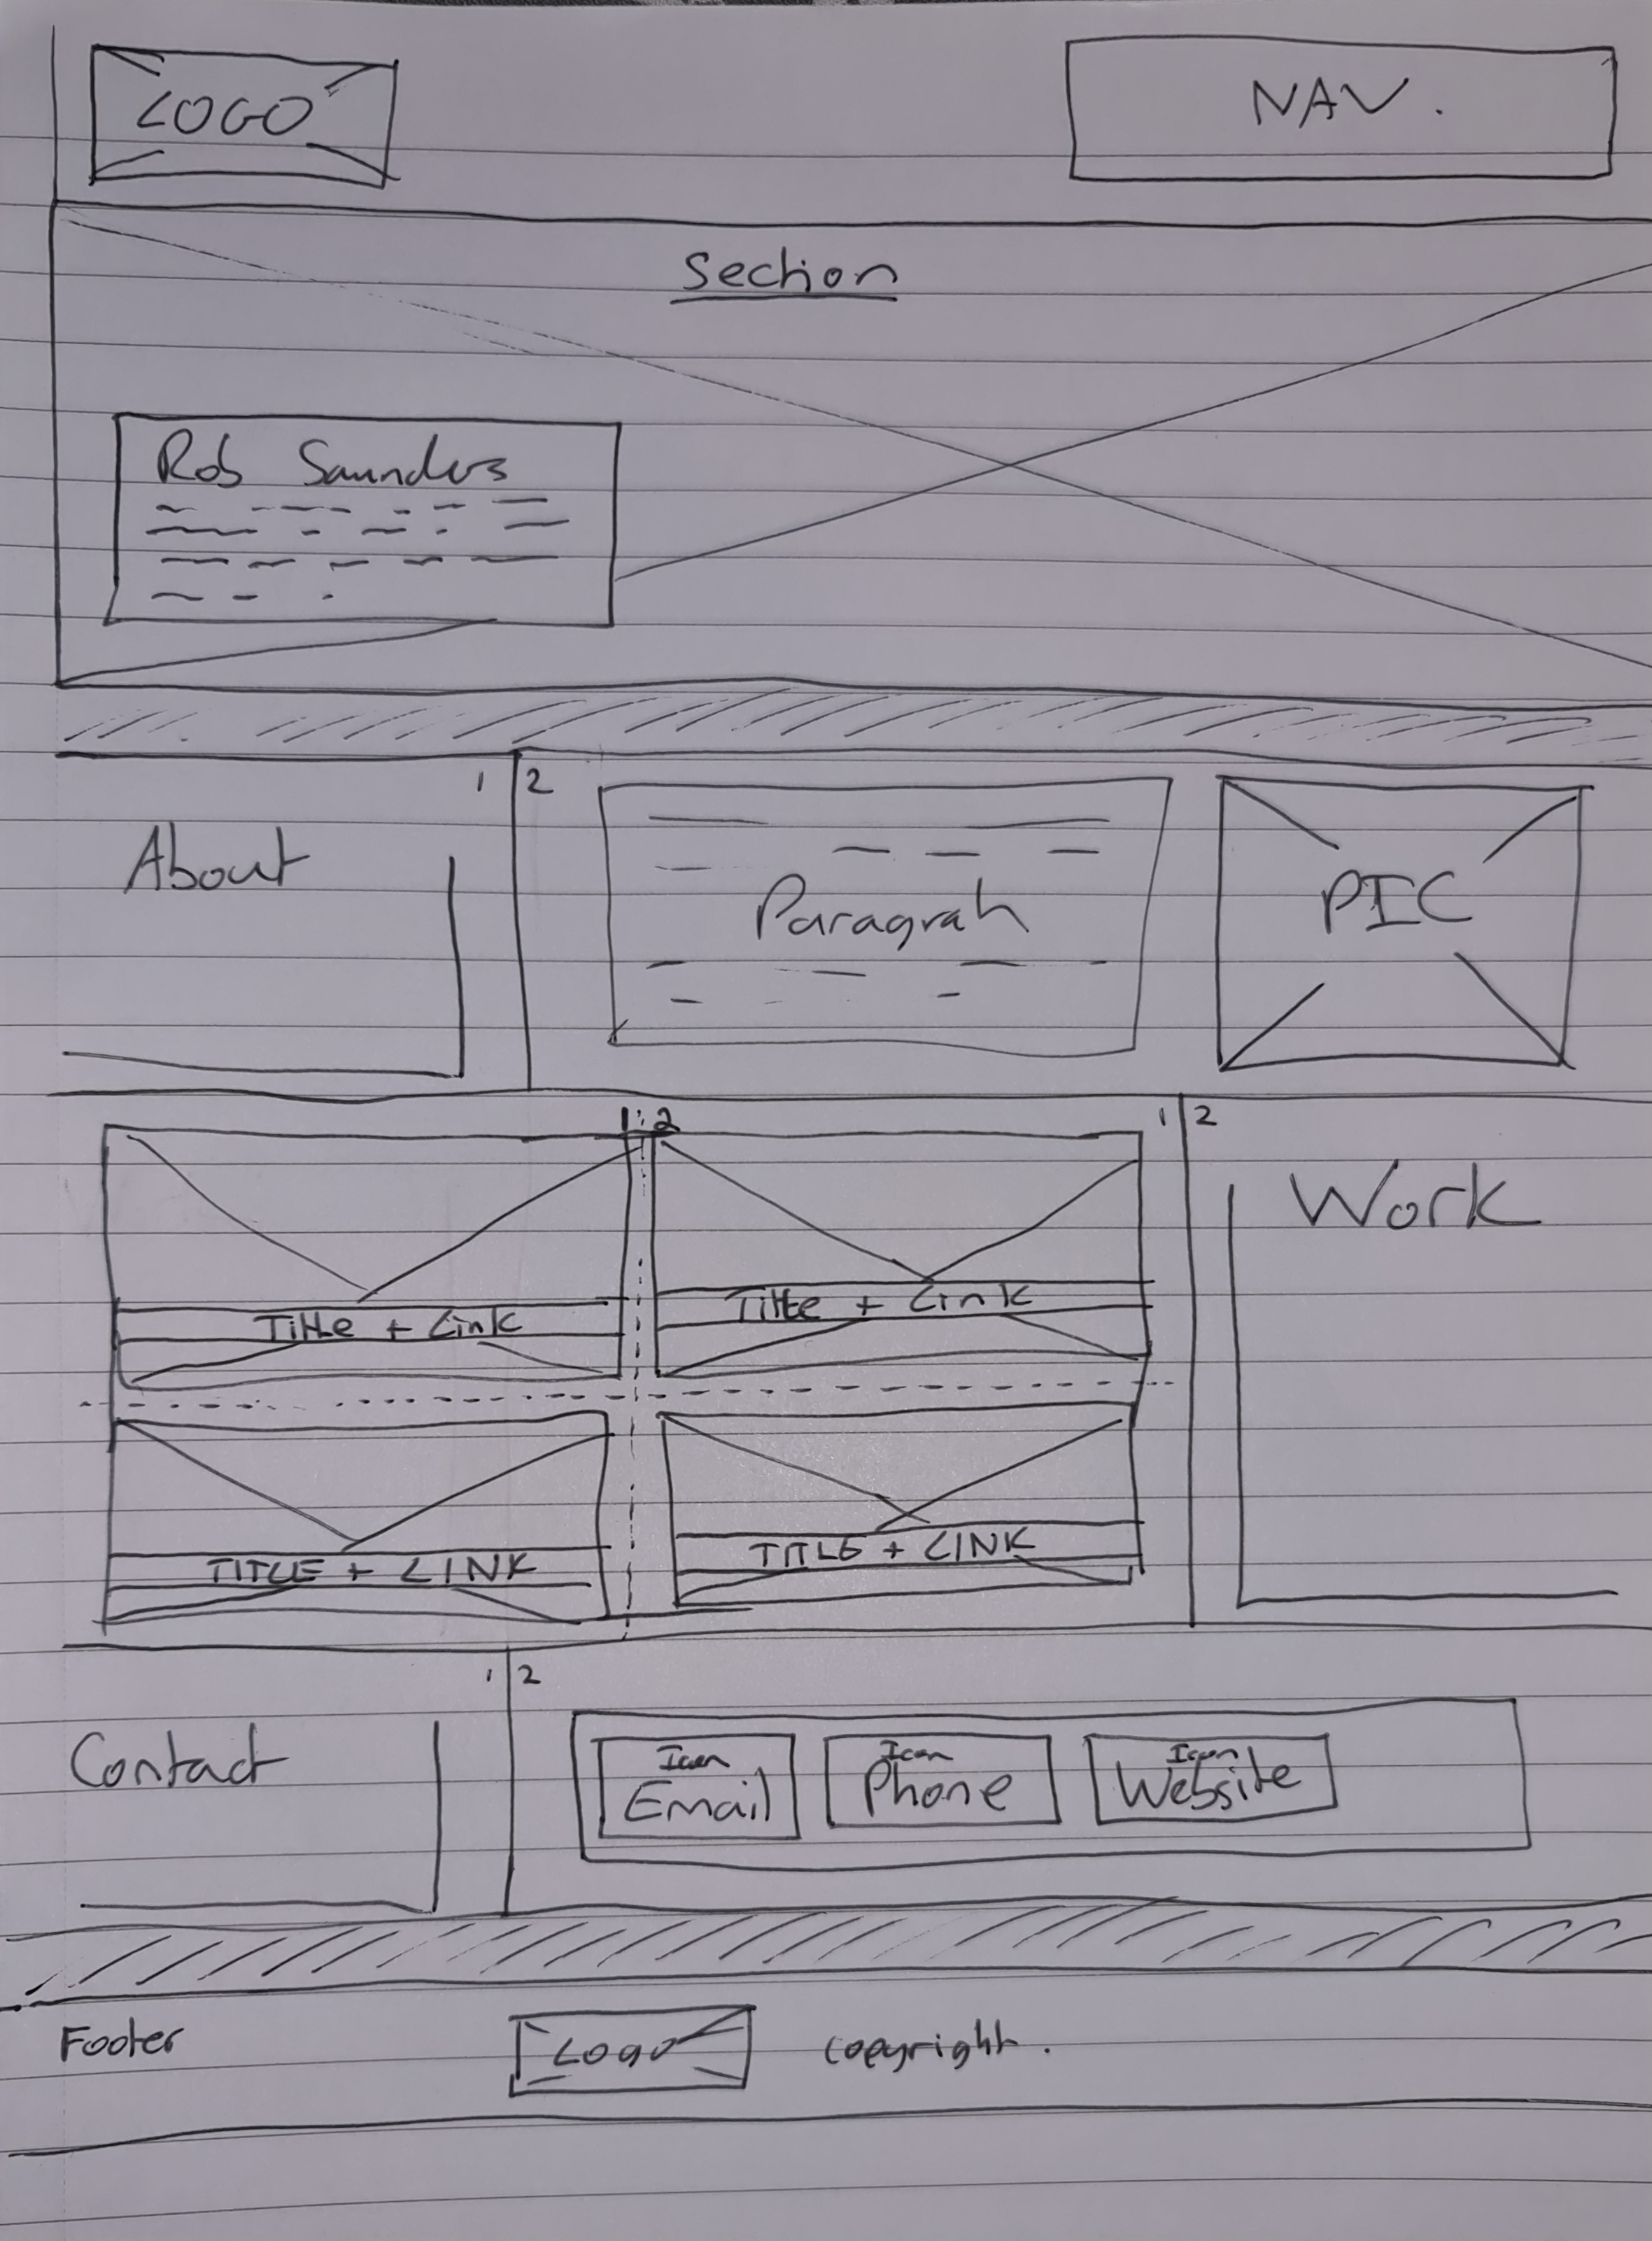 LOGO
NAV.
Section
Rob Saunders
1 2
About
Paragrah
PIC
1 2
1 2
Work
Title + Link
Title + Link
TITLE + LINK
TITLE + LINK
1 2
Contact
Icon
Email
Icon
Phone
Icon
Website
Footer
Logo
copyright.